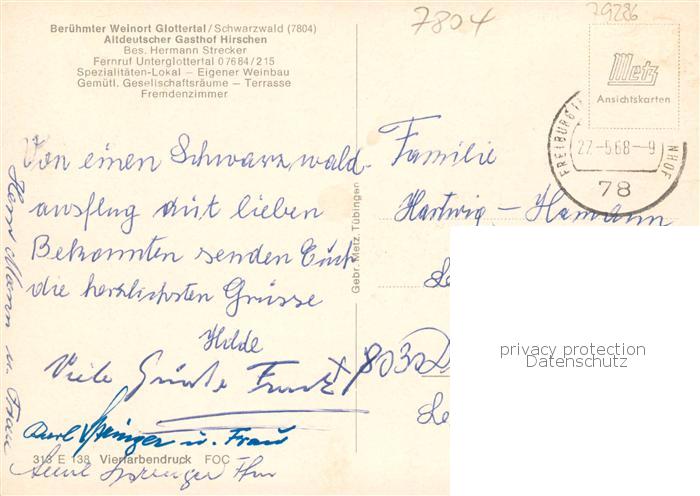 7804
79286
Berühmter Weinort Glottertal/Schwarzwald (7804)
Altdeutscher Gasthof Hirschen
Bes. Hermann Strecker
Fernruf Unterglottertal 07684/215
Spezialitäten-Lokal — Eigener Weinbau
Gemütl. Gesellschaftsräume — Terrasse
Fremdenzimmer
Metz
Ansichtskarten
FREIBURG
27-5.68-9
78
Von einen Schwarzwald-
ausflug mit lieben
Bekannten senden Euch
die herzlichsten Grüsse
Hilde
Viele Grüße
Karl Springer u. Frau
Springer
Herr Mann u. Frau
Gebr. Metz, Tübingen
Familie
Hartwig - Hamann
privacy protection
Datenschutz
313 E 138 Vierfarbendruck FOC